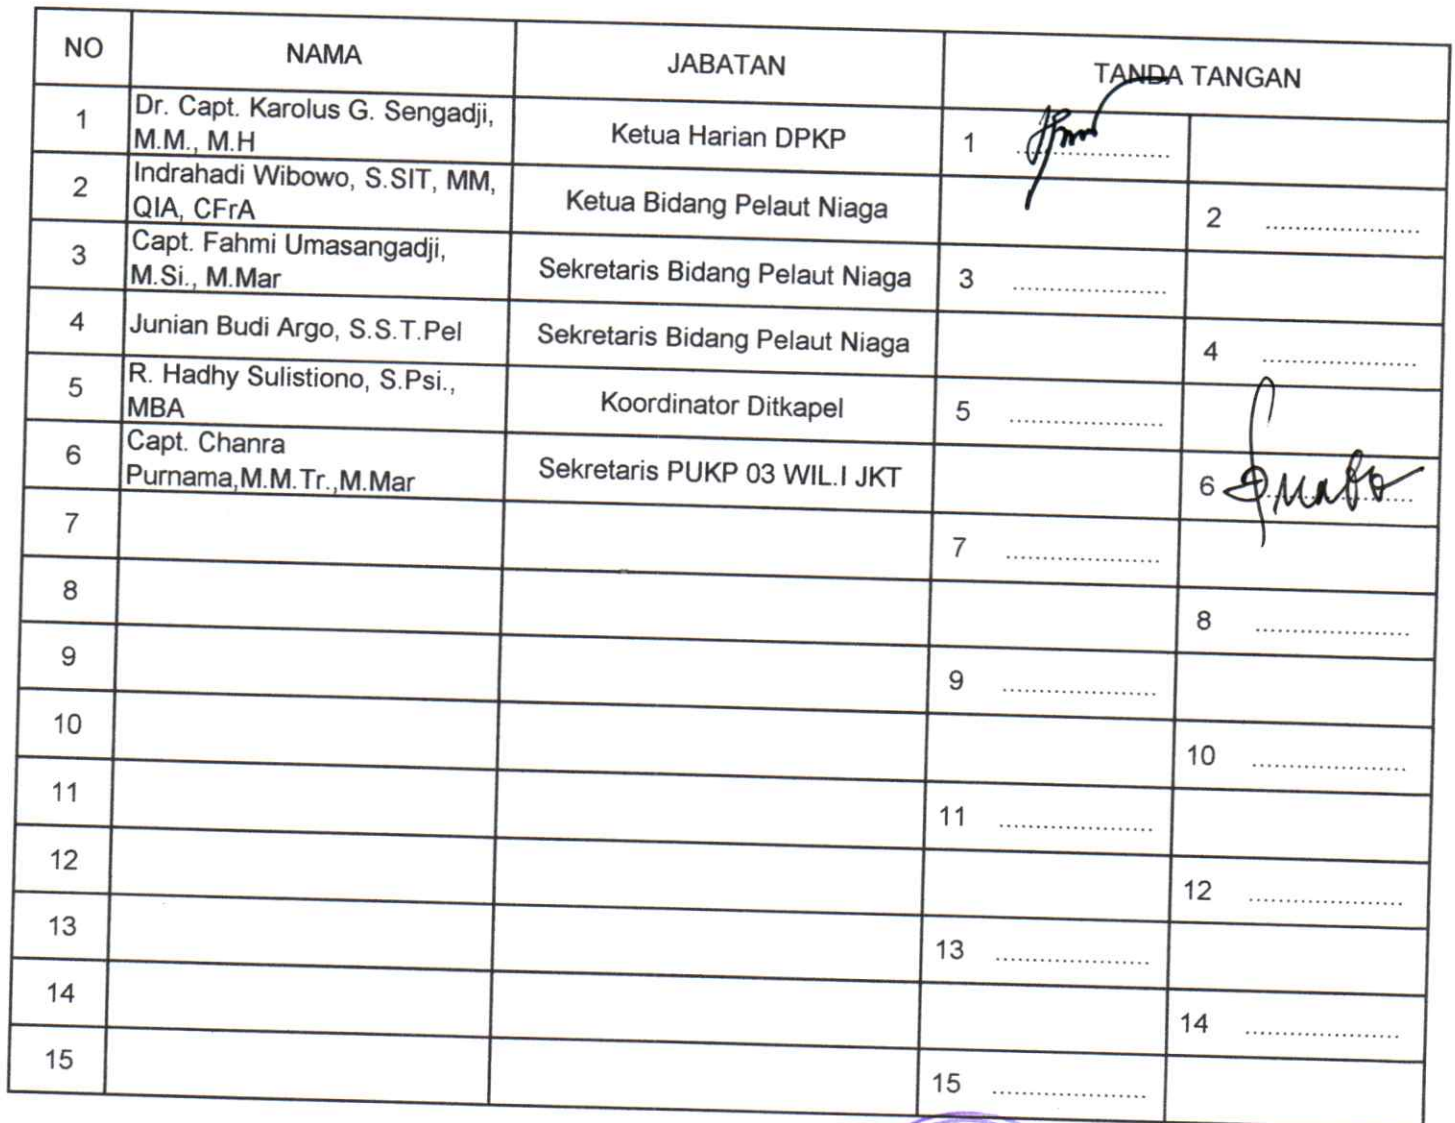 NO NAMA JABATAN TANDA TANGAN
1 Dr. Capt. Karolus G. Sengadji, M.M., M.H Ketua Harian DPKP 1 ....................
2 Indrahadi Wibowo, S.SIT, MM, QIA, CFrA Ketua Bidang Pelaut Niaga 2 ....................
3 Capt. Fahmi Umasangadji, M.Si., M.Mar Sekretaris Bidang Pelaut Niaga 3 ....................
4 Junian Budi Argo, S.S.T.Pel Sekretaris Bidang Pelaut Niaga 4 ....................
5 R. Hadhy Sulistiono, S.Psi., MBA Koordinator Ditkapel 5 ....................
6 Capt. Chanra Purnama,M.M.Tr.,M.Mar Sekretaris PUKP 03 WIL.I JKT 6 ....................
7 7 ....................
8 8 ....................
9 9 ....................
10 10 ....................
11 11 ....................
12 12 ....................
13 13 ....................
14 14 ....................
15 15 ....................